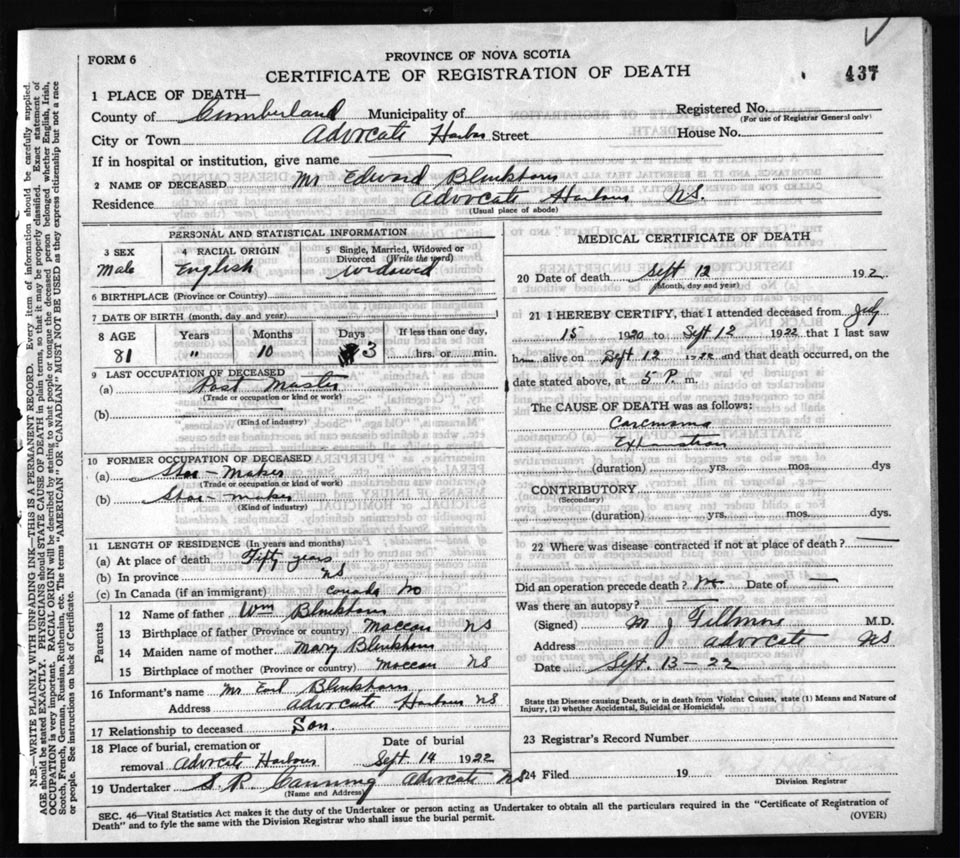 FORM 6
PROVINCE OF NOVA SCOTIA
CERTIFICATE OF REGISTRATION OF DEATH
437
1 PLACE OF DEATH—
County of Cumberland Municipality of
Registered No.
(For use of Registrar General only)
City or Town Advocate Harbor Street
House No.
If in hospital or institution, give name
2 NAME OF DECEASED Mr Edward Blenkhorn
Residence Advocate Harbour NS.
(Usual place of abode)
PERSONAL AND STATISTICAL INFORMATION
3 SEX
Male
4 RACIAL ORIGIN
English
5 Single, Married, Widowed or
Divorced (Write the word)
widowed
6 BIRTHPLACE (Province or Country)
7 DATE OF BIRTH (month, day and year)
8 AGE Years Months Days If less than one day,
81 " 10 3 hrs. or min.
9 LAST OCCUPATION OF DECEASED
(a) Post Master
(Trade or occupation or kind of work)
(b)
(Kind of industry)
10 FORMER OCCUPATION OF DECEASED
(a) Shoe-Maker
(Trade or occupation or kind of work)
(b) Shoe-maker
(Kind of industry)
11 LENGTH OF RESIDENCE (In years and months)
(a) At place of death Fifty years
(b) In province NS
(c) In Canada (if an immigrant) Canada No
Parents
12 Name of father Wm Blenkhorn
13 Birthplace of father (Province or country) Maccan NS
14 Maiden name of mother Mary Blenkhorn
15 Birthplace of mother (Province or country) Maccan NS
16 Informant's name Mr Earl Blenkhorn
Address Advocate Harbour NS
17 Relationship to deceased Son.
18 Place of burial, cremation or
removal Advocate Harbour
Date of burial
Sept 14 1922
19 Undertaker S. R. Canning Advocate NS
(Name and Address)
MEDICAL CERTIFICATE OF DEATH
20 Date of death Sept 12 192
(Month, day and year)
21 I HEREBY CERTIFY, that I attended deceased from July
15 1920 to Sept 12 1922 that I last saw
him alive on Sept 12 1922 and that death occurred, on the
date stated above, at 5 P. m.
The CAUSE OF DEATH was as follows:
Carcinoma
Exhaustion
(duration) yrs. mos. dys
CONTRIBUTORY
(Secondary)
(duration) yrs. mos. dys.
22 Where was disease contracted if not at place of death?
Did an operation precede death? No Date of
Was there an autopsy?
(Signed) M J Fillmore M.D.
Address Advocate NS
Date Sept. 13-22
State the Disease causing Death, or in death from Violent Causes, state (1) Means and Nature of
Injury, (2) whether Accidental, Suicidal or Homicidal.
23 Registrar's Record Number
24 Filed 19
Division Registrar
SEC. 46—Vital Statistics Act makes it the duty of the Undertaker or person acting as Undertaker to obtain all the particulars required in the "Certificate of Registration of
Death" and to fyle the same with the Division Registrar who shall issue the burial permit.
(OVER)
N.B.—WRITE PLAINLY WITH UNFADING INK—THIS IS A PERMANENT RECORD. Every item of information should be carefully supplied.
AGE should be stated EXACTLY. PHYSICIANS should STATE CAUSE OF DEATH in plain terms, so that it may be properly classified. Exact statement of
OCCUPATION is very important. RACIAL ORIGIN will be described by stating to what people or tongue the deceased person belonged, whether English, Irish,
Scotch, French, German, Russian, Ruthenian, etc. The terms "AMERICAN" OR "CANADIAN" MUST NOT BE USED as they express citizenship but not a race
or people. See instructions on back of Certificate.